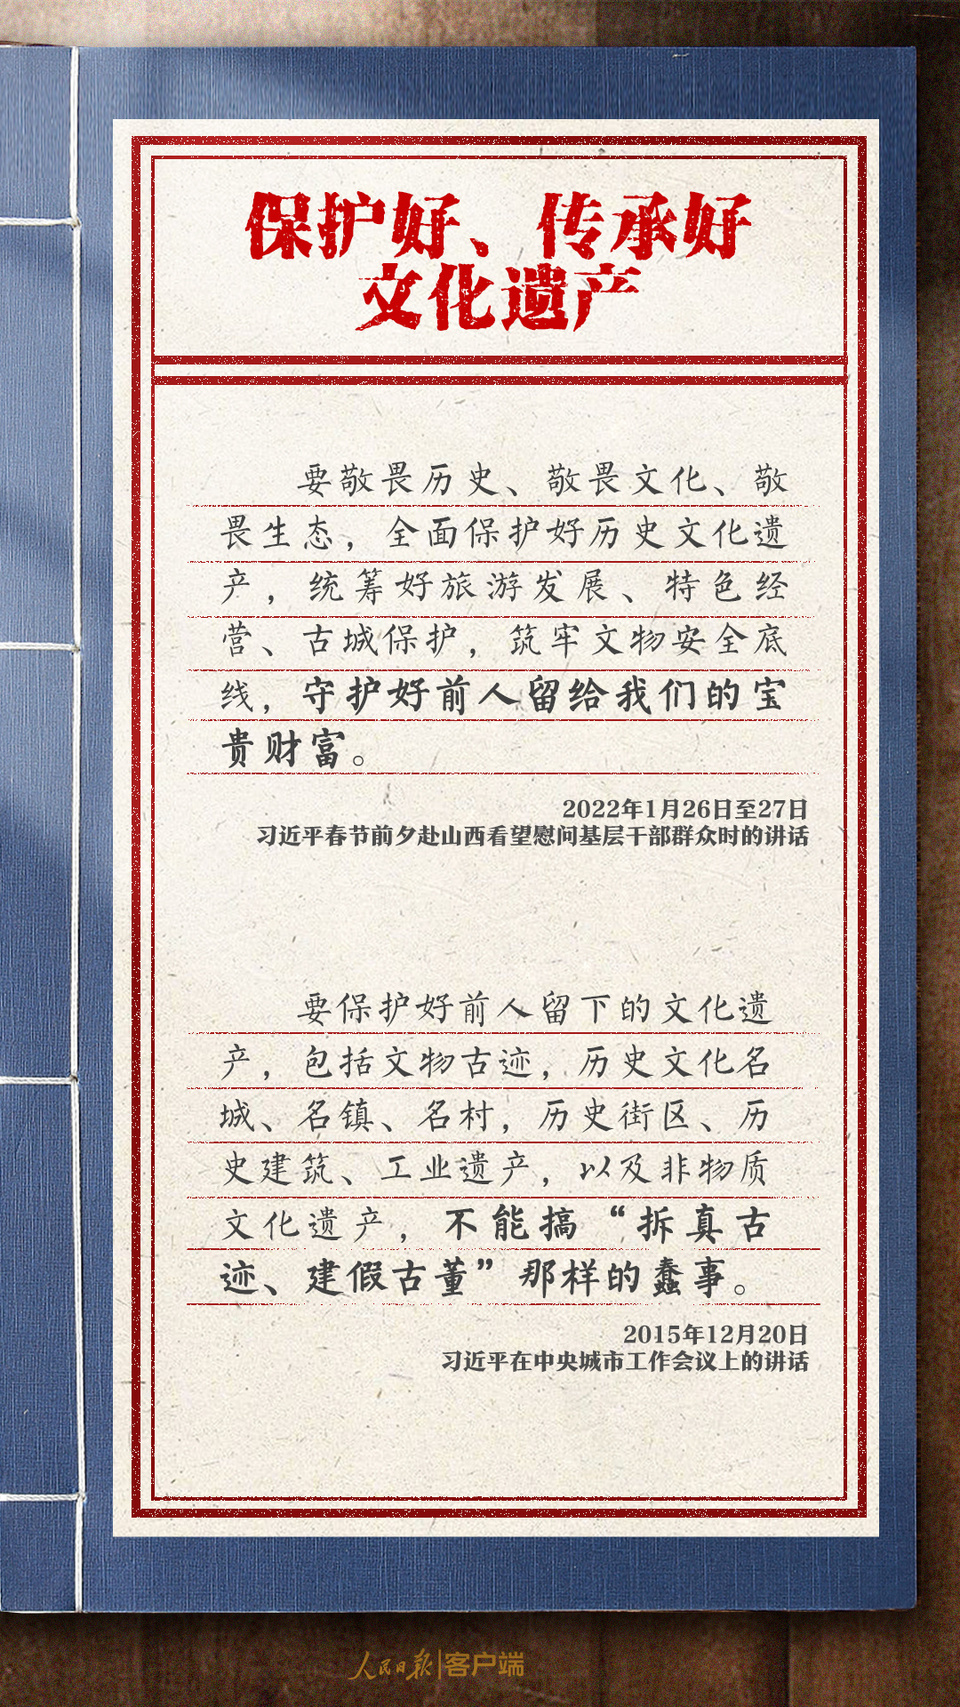 保护好、传承好
文化遗产
要敬畏历史、敬畏文化、敬
畏生态，全面保护好历史文化遗
产，统筹好旅游发展、特色经
营、古城保护，筑牢文物安全底
线，守护好前人留给我们的宝
贵财富。
2022年1月26日至27日
习近平春节前夕赴山西看望慰问基层干部群众时的讲话
要保护好前人留下的文化遗
产，包括文物古迹，历史文化名
城、名镇、名村，历史街区、历
史建筑、工业遗产，以及非物质
文化遗产，不能搞“拆真古
迹、建假古董”那样的蠢事。
2015年12月20日
习近平在中央城市工作会议上的讲话
人民日报|客户端